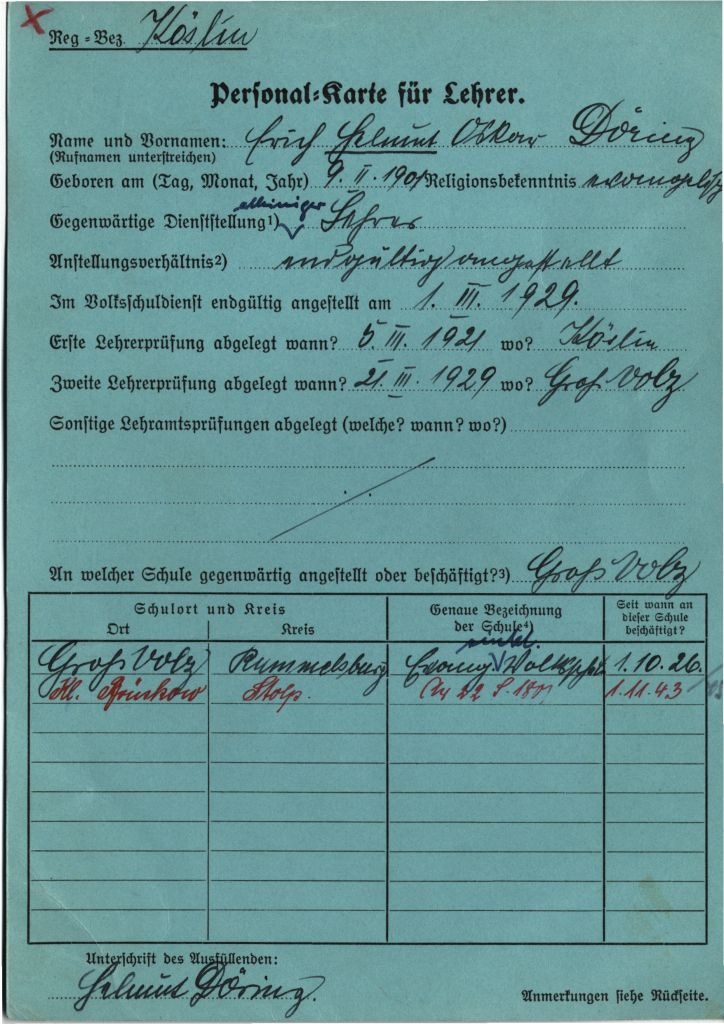 Reg-Bez. Köslin
Personal-Karte für Lehrer.
Name und Vornamen: Erich Helmut Oskar Döring
(Rufnamen unterstreichen)
Geboren am (Tag, Monat, Jahr) 9. II. 1901 Religionsbekenntnis evangelisch
alleiniger
Gegenwärtige Dienststellung1) Lehrer
Anstellungsverhältnis2) endgültig angestellt
Im Volksschuldienst endgültig angestellt am 1. III. 1929.
Erste Lehrerprüfung abgelegt wann? 5. III. 1921 wo? Köslin
Zweite Lehrerprüfung abgelegt wann? 21. III. 1929 wo? Groß Volz
Sonstige Lehramtsprüfungen abgelegt (welche? wann? wo?)
An welcher Schule gegenwärtig angestellt oder beschäftigt?3) Groß Volz
Schulort und Kreis
Ort
Kreis
Genaue Bezeichnung der Schule4)
Seit wann an dieser Schule beschäftigt?
einkl.
Groß Volz Rummelsburg Evang. Volksschule 1.10.26
Kl. Brüskow Stolp. 1.11.43
Unterschrift des Ausfüllenden:
Helmut Döring.
Anmerkungen siehe Rückseite.